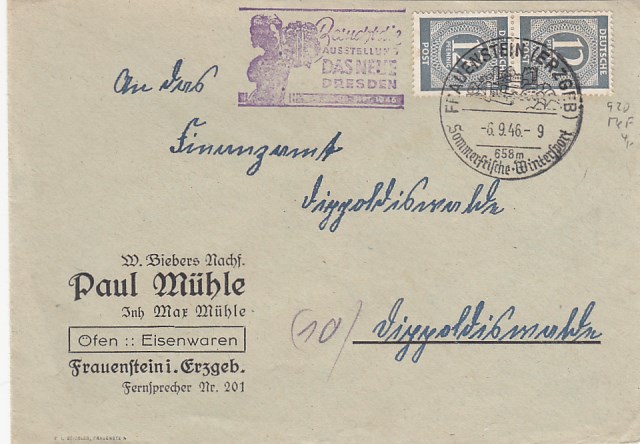 Besucht die
AUSSTELLUNG
DAS NEUE
DRESDEN
1946
DEUTSCHE POST
12
DEUTSCHE POST
12
FRAUENSTEIN (ERZGEB)
-6.9.46.-9
658m
Sommerfrische · Wintersport
An das
Finanzamt
Dippoldiswalde
W. Biebers Nachf.
Paul Mühle
Inh Max Mühle
Öfen :: Eisenwaren
Frauenstein i. Erzgeb.
Fernsprecher Nr. 201
(10) Dippoldiswalde